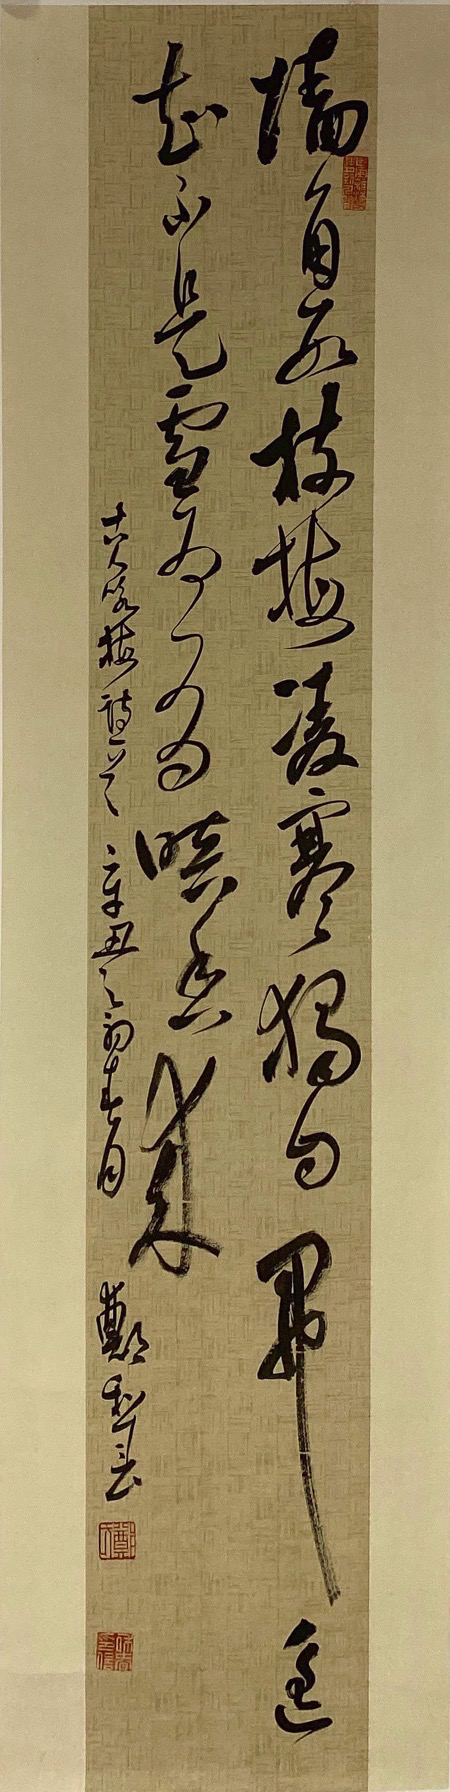 墙角数枝梅凌寒独自开遥
知不是雪为有为暗香来
古人咏梅诗一首 辛丑之初春月 郑